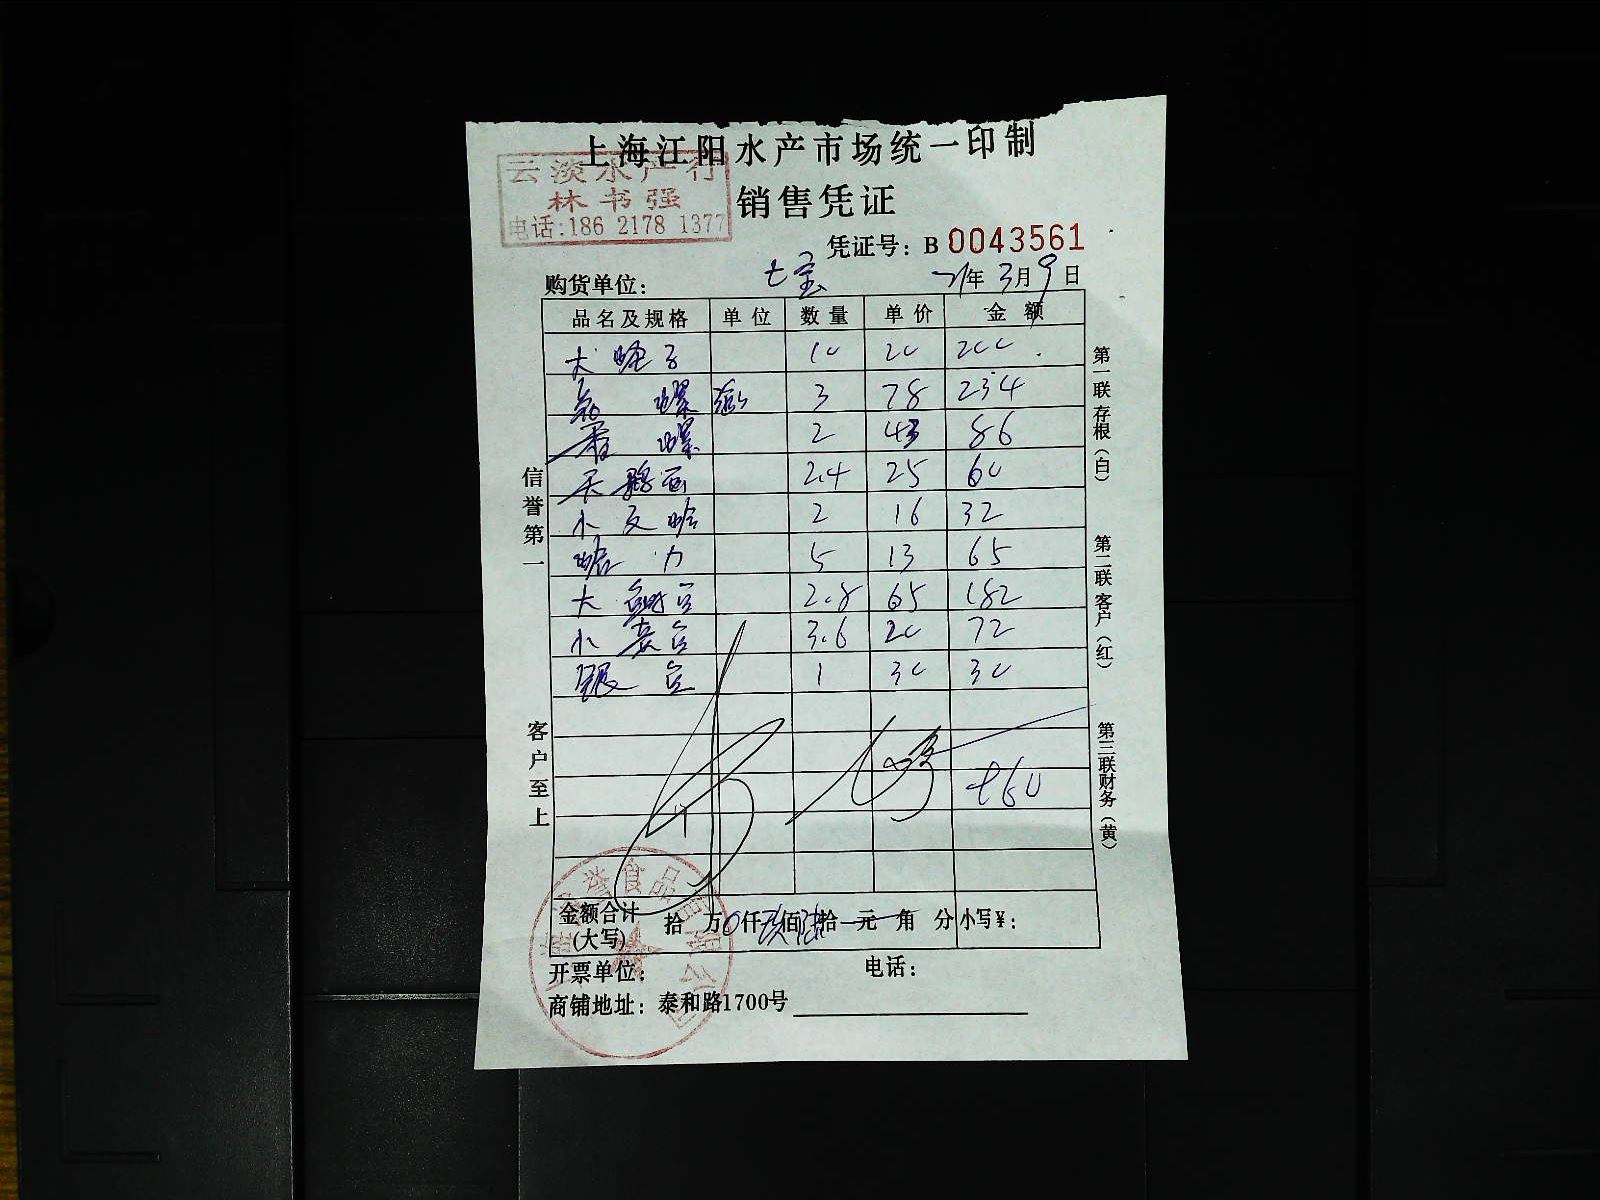 上海江阳水产市场统一印制
云淡水产行
林书强
电话:186 2178 1377
销售凭证
凭证号: B 0043561
购货单位: 七宝 21年3月9日
品名及规格 单位 数量 单价 金额
大蛏子 10 20 200
螺 3 78 234
香螺 2 43 86
天鹅 2.4 25 60
小 蛤 2 16 32
5 13 65
大 2.8 65 182
小 3.6 20 72
银 1 30 30
960
信誉第一
客户至上
第一联存根(白)
第二联客户(红)
第三联财务(黄)
金额合计(大写) 拾 万 0仟玖佰陆拾 元 角 分 小写¥:
誉食品
开票单位: 电话:
商铺地址: 泰和路1700号